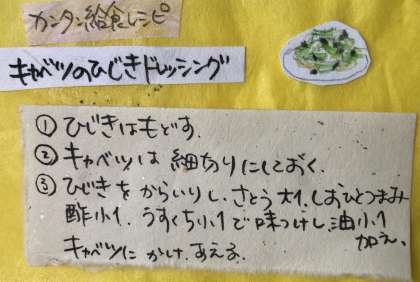 カンタン給食レシピ
キャベツのひじきドレッシング
① ひじきはもどす.
② キャベツは細切りにしておく.
③ ひじきをからいりし、さとう大1、しおひとつまみ
酢小1、うすくち小1で味つけし、油小1
加え、
キャベツにかけ、あえる.